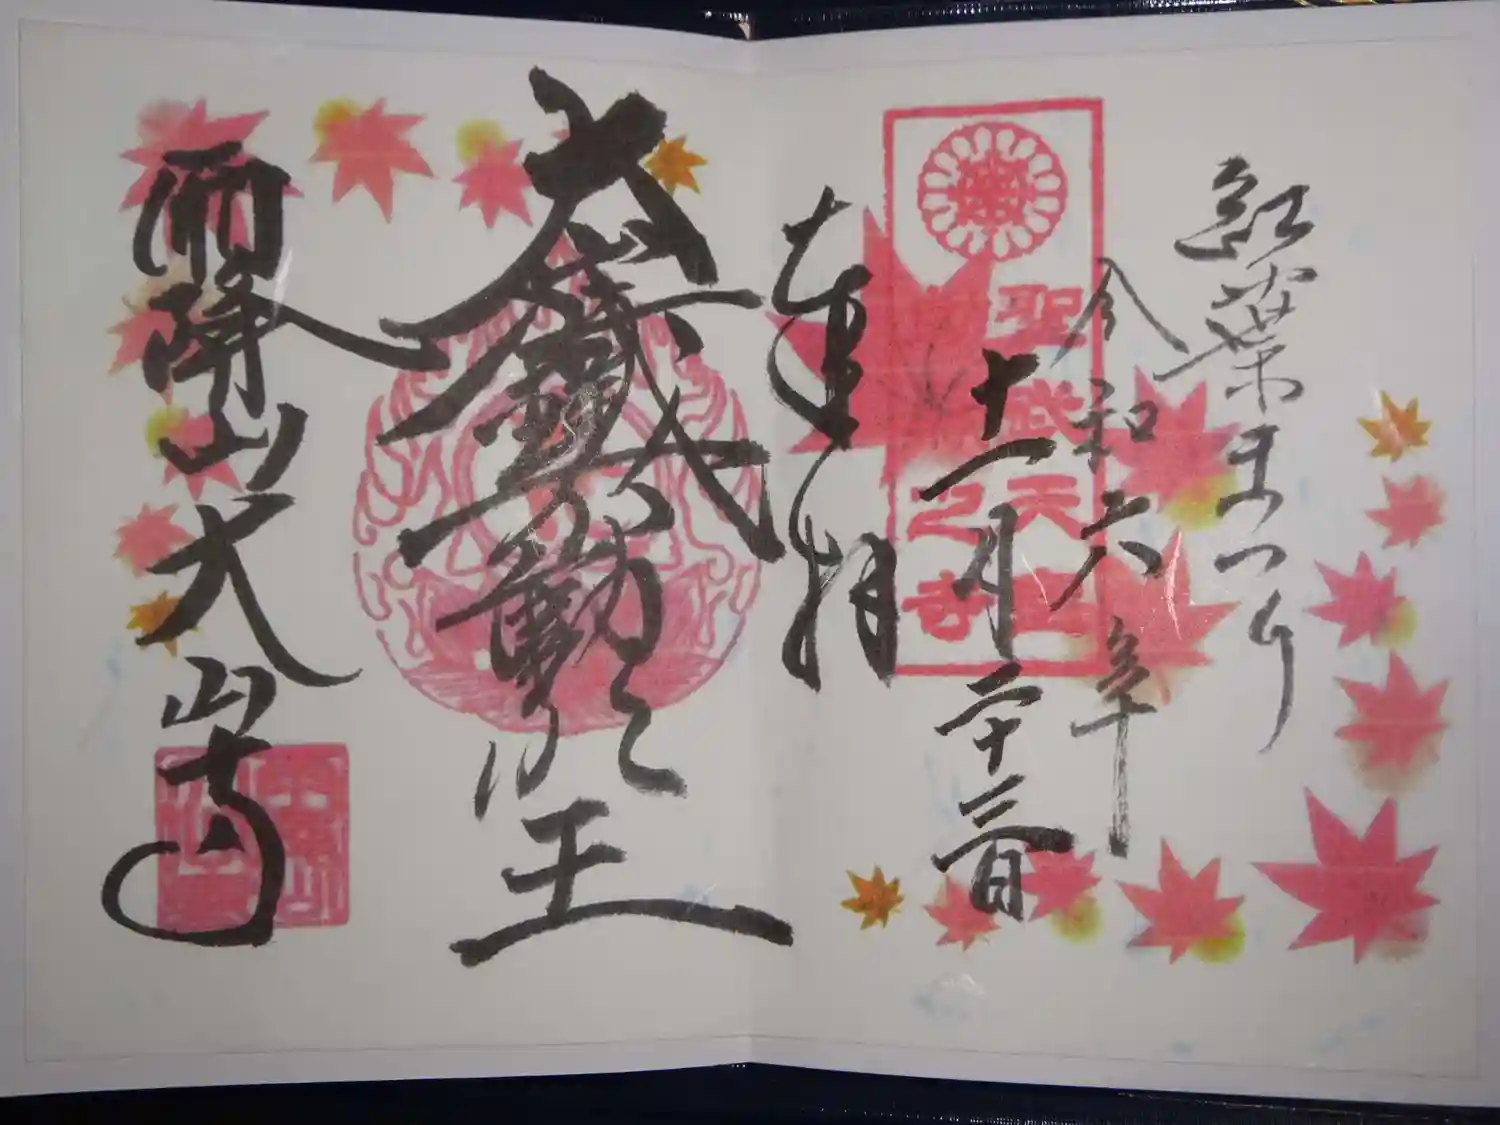 紅葉まつり
令和六年
十一月二十三日
聖武天皇
勅願之寺
奉拝
大山鐵不動明王
雨降山大山寺